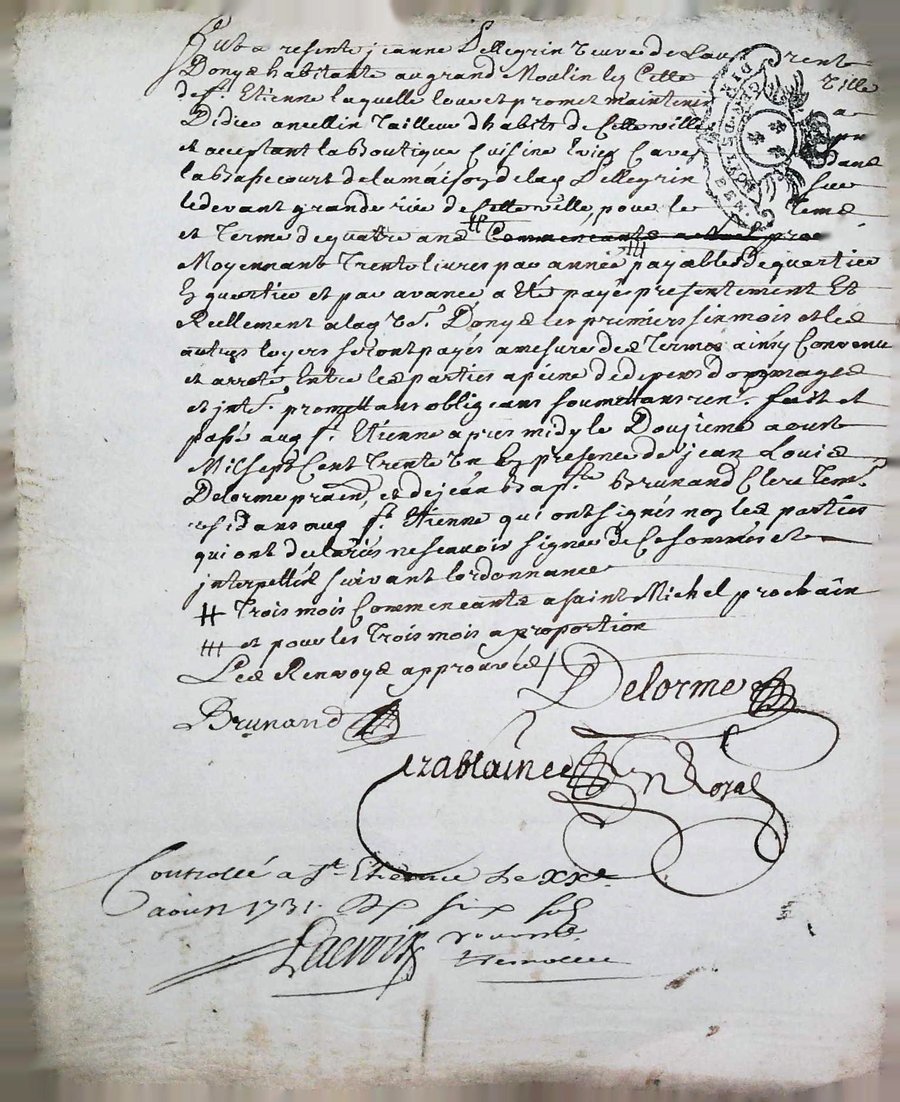 fut presente jeanne Pellegrin veuve de Laurent
Donys habitante au grand Moulin les Cette ville
de st. Etienne laquelle loue et promet maintenir a
Didier ancellin Tailleur dhabits de Cette ville pnt
et acceptant la Boutique Cuisine Cave dans
la Bassecourt de la maison de lad Pellegrin sur
le devant grande rüe de Cette ville, pour le tems
et Terme de quatre ans # Commencants
Moyennant Trente livres par année ||| payables De quartier
En quartier et par avance a Eté payé presentement Et
Reellement a lad ve. Donys les premiers six mois et les
autres loyers seront payés a mesure des Termes ainsy Convenu
et arrété Entre les parties a peine de depens dommages
et intts. promettans obligeans soumettans renc. fait et
passé aud st. Etienne apres midy le Douzieme aoust
Mil sept Cent Trente Un En presence de jean Louis
Delorme praen, et de jean Bapte. Brunand Clerc Tem.
residans aud st. Etienne qui ont signés non les parties
qui ont declarés ne scavoir signer de Ce sommés et
interpellés suivant lordonnance
# Trois mois Commencants a saint Michel prochain
||| et pour les Trois mois a proportion
Les Renvoys approuvés /
Delorme
Brunand
n Royal
Controllé a St Etienne le xxe
aoust 1731. six sols
Lacroix
DE LYON